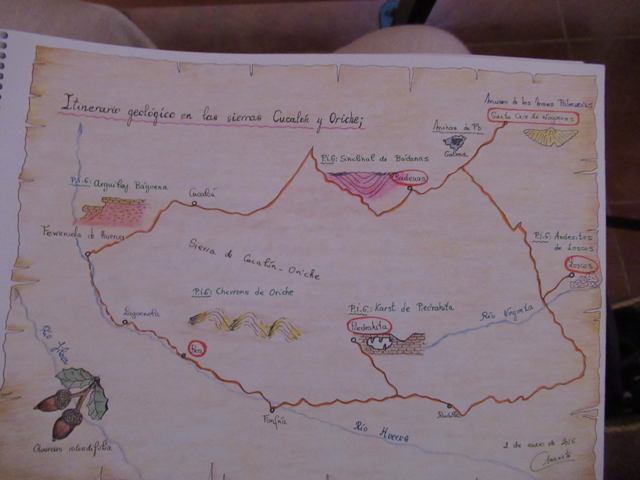 Itinerario geológico en las sierras Cucalón y Oriche;
Museo de los Mares Paleozoicos
Santa Cruz de Nogueras
Minas de Pb
Galena
P.I.G: Sinclinal de Bádenas
Bádenas
P.I.G: Arguilay Báguena
Cucalón
Ferreruela de Huerva
P.I.G: Andesitas
de Loscos
Loscos
Sierra de Cucalón-Oriche
P.I.G: Chevrons de Oriche
P.I.G: Karst de Piedrahita
Piedrahita
Río Nogueta
Lagueruela
Bea
Río Jiloca
Fonfría
Rudilla
Río Huerva
Quercus rotundifolia
2 de enero de 2016